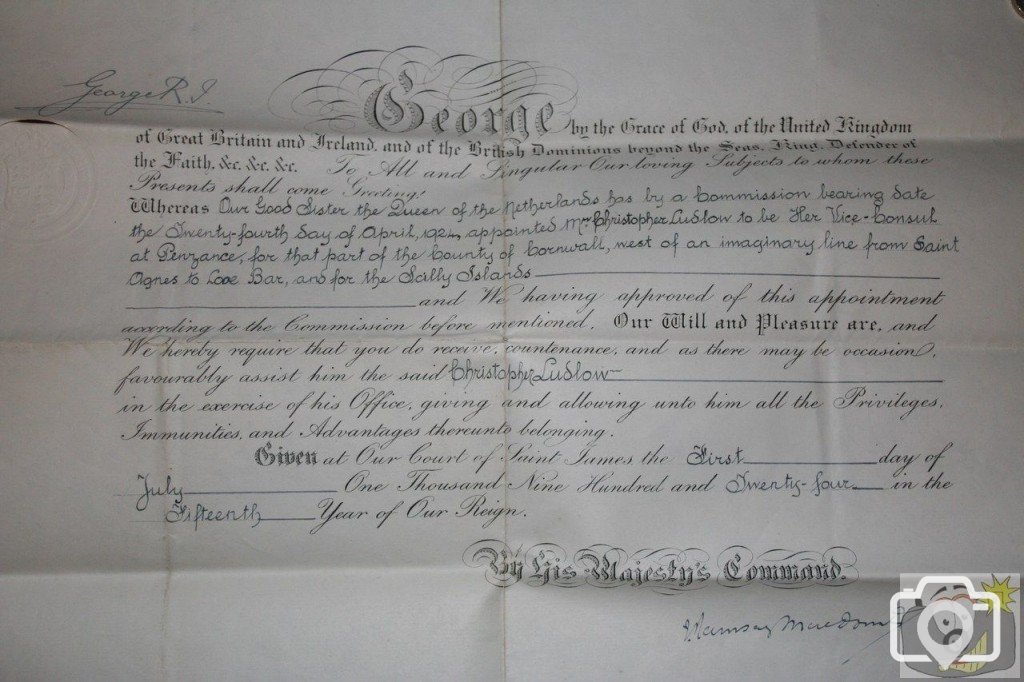 George R. I.
George by the Grace of God, of the United Kingdom
of Great Britain and Ireland, and of the British Dominions beyond the Seas, King, Defender of
the Faith, &c. &c. &c. To All and Singular Our loving Subjects to whom these
Presents shall come Greeting!
Whereas Our Good Sister the Queen of the Netherlands has by a Commission bearing date
the Twenty-fourth day of April, 1924, appointed Mr. Christopher Ludlow to be Her Vice-Consul
at Penzance, for that part of the County of Cornwall, west of an imaginary line from Saint
Agnes to Looe Bar, and for the Scilly Islands
and We having approved of this appointment
according to the Commission before mentioned, Our Will and Pleasure are, and
We hereby require that you do receive, countenance, and as there may be occasion,
favourably assist him the said Christopher Ludlow
in the exercise of his Office, giving and allowing unto him all the Privileges,
Immunities, and Advantages thereunto belonging.
Given at Our Court of Saint James, the First day of
July One Thousand Nine Hundred and Twenty-four in the
Fifteenth Year of Our Reign.
By His Majesty's Command.
J Ramsay MacDonald